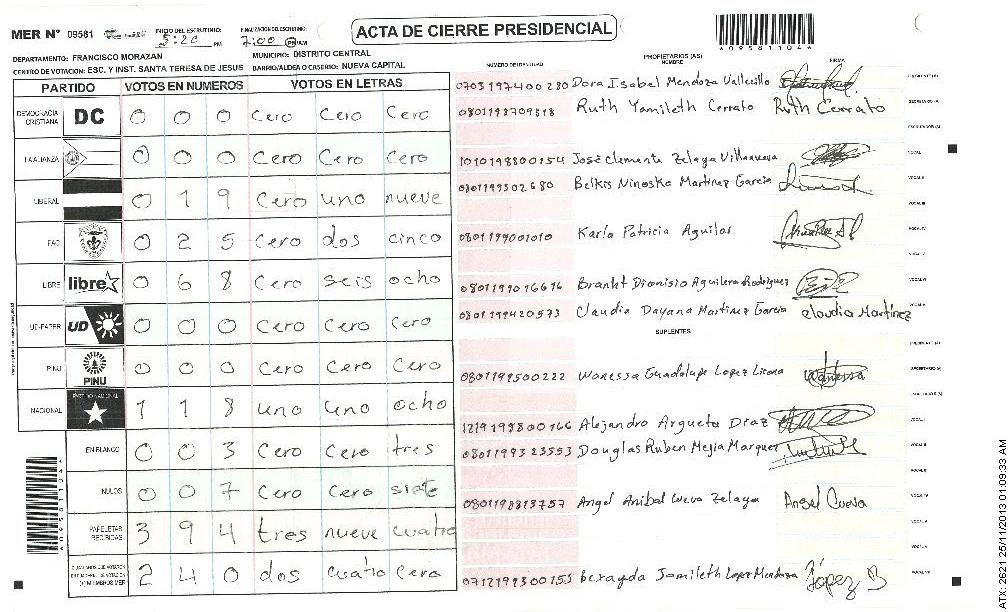 ACTA DE CIERRE PRESIDENCIAL
MER N° 09581
INICIO DEL ESCRUTINIO: 5:20 PM
FINALIZACION DEL ESCRUTINIO: 7:00 PM/AM
A09581104A
DEPARTAMENTO: FRANCISCO MORAZAN MUNICIPIO: DISTRITO CENTRAL
CENTRO DE VOTACION: ESC. Y INST. SANTA TERESA DE JESUS BARRIO/ALDEA O CASERIO: NUEVA CAPITAL
PARTIDO VOTOS EN NUMEROS VOTOS EN LETRAS
DEMOCRACIA CRISTIANA DC 0 0 0 Cero Cero Cero
LA ALIANZA 0 0 0 Cero Cero Cero
LIBERAL 0 1 9 Cero uno nueve
FAO 0 2 5 Cero dos cinco
LIBRE libre 0 6 8 Cero seis ocho
UD-FAPER UD 0 0 0 Cero Cero Cero
PINU PINU 0 0 0 Cero Cero Cero
NACIONAL PARTIDO NACIONAL 1 1 8 uno uno ocho
EN BLANCO 0 0 3 Cero Cero tres
NULOS 0 0 7 Cero Cero siete
PAPELETAS RECIBIDAS 3 9 4 tres nueve cuatro
2 4 0 dos cuatro Cero
A09581104A
NUMERO DE IDENTIDAD PROPIETARIOS (AS) NOMBRE FIRMA
0703197400280 Dora Isabel Mendoza Vallecillo
0801198709818 Ruth Yamileth Cerrato Ruth Cerrato
1010198800154 José Clemente Zelaya Villanueva
0801199502680 Belkis Ninoska Martinez Garcia
0801197001010 Karla Patricia Aguilar
0801199016616 Brankt Dionisio Aguilera Rodriguez
0801199420573 Claudia Dayana Martinez Garcia Claudia Martínez
SUPLENTES
0801199500222 Wanessa Guadalupe Lopez Licona Wanessa
1219198800166 Alejandro Argueta Diaz
0801199323553 Douglas Ruben Mejia Marquez
0801198813757 Angel Anibal Cueva Zelaya Angel Cueva
0712199300155 Berayda Jamileth Lopez Mendoza López B
ATX: 2521 25/11/2013 01:09:33 AM